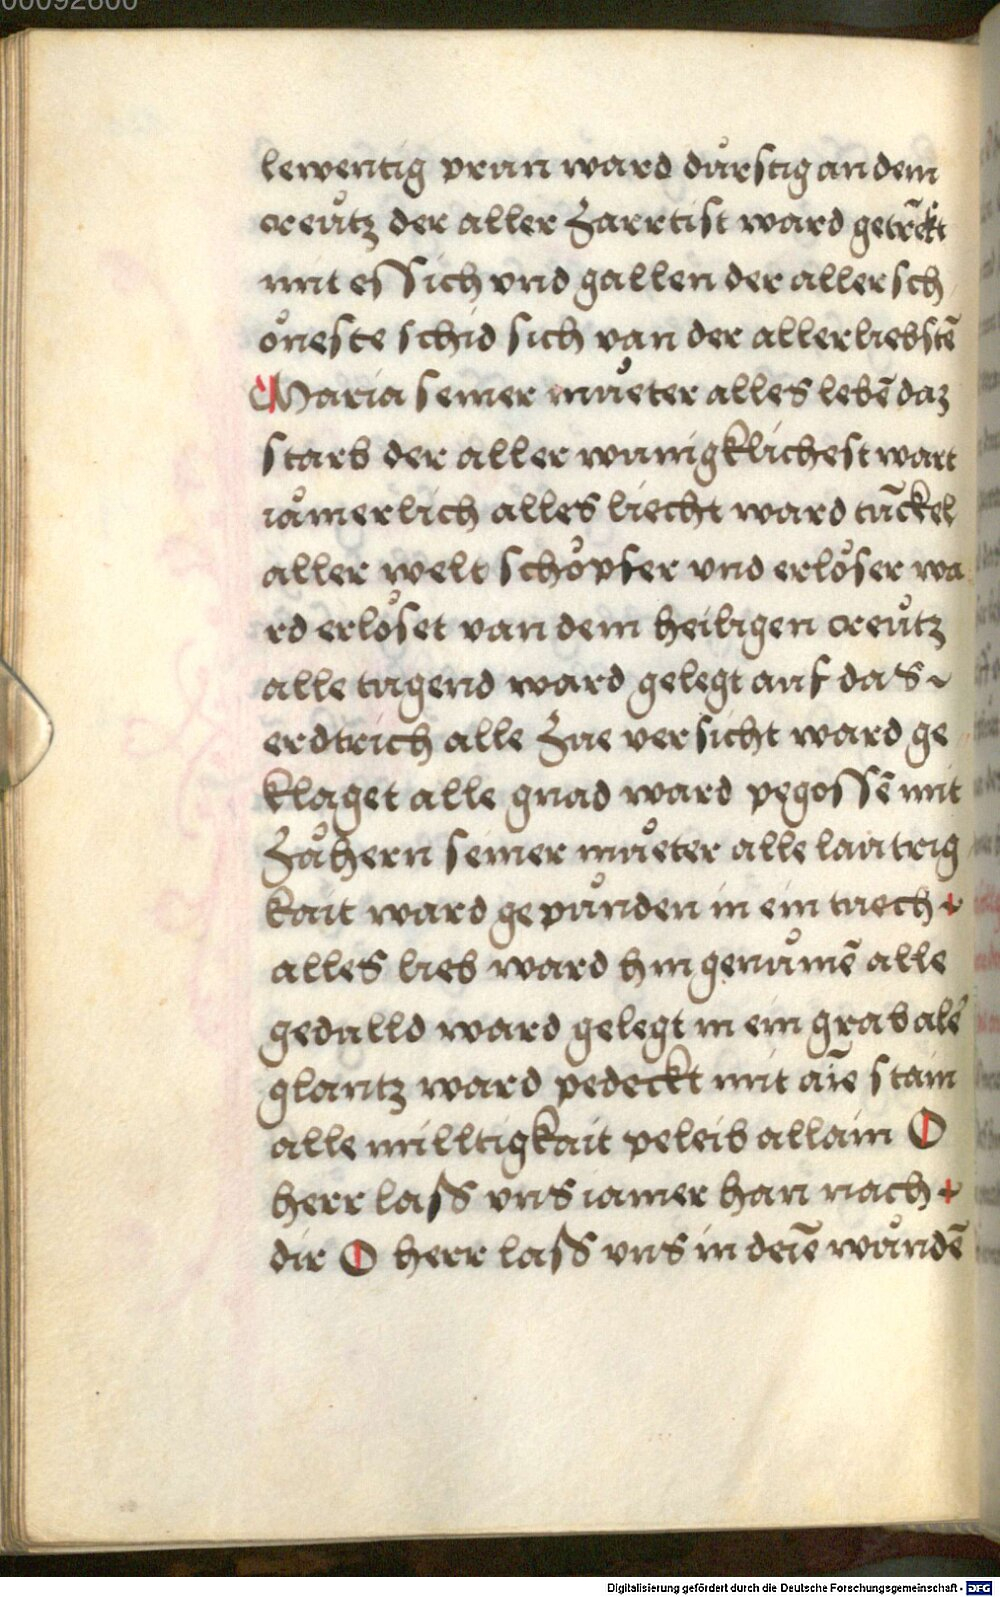 00092600
lewentig prun ward důrstig an dem
creůtz der aller zarrtist ward getrēkt
mit essich vnd gallen der aller sch
őneste schid sich van der allerliebstē
Maria seiner můeter alles lebē daz
starb der aller wunigklichest wart
iåmerlich alles liecht ward tūckel
aller welt schőpfer vnd erlőser wa
rd erlőset van dem heiligen creůtz
alle tugend ward gelegt auf das
erdtrich alle zue versicht ward ge
klaget alle gnad ward pegossē mit
zåhern seiner můeter alle lautrig
kait ward gepůnden in ein tuech
alles lieb ward hin genůmē alle
geduld ward gelegt in ein grab alē
glantz ward pedeckt mit aīē stain
alle milltigkait peleib allain O
herr lass vns iamer han nach
dir O herr lass vns in deīē wůndē
Digitalisierung gefördert durch die Deutsche Forschungsgemeinschaft - DFG